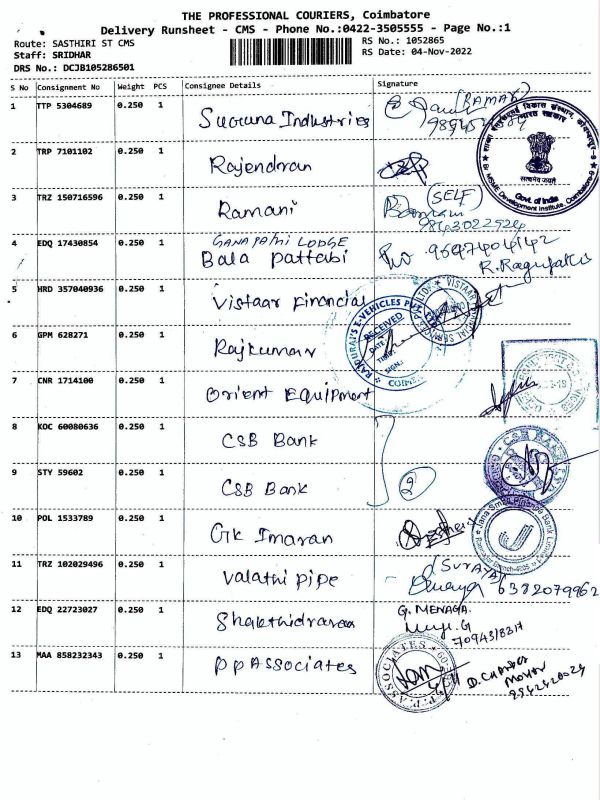 THE PROFESSIONAL COURIERS, Coimbatore
Delivery Runsheet - CMS - Phone No.:0422-3505555 - Page No.:1
Route: SASTHIRI ST CMS
RS No.: 1052865
Staff: SRIDHAR
RS Date: 04-Nov-2022
DRS No.: DCJB105286501
S No Consignment No Weight PCS Consignee Details Signature
1 TTP 5304689 0.250 1 Suguna Industries
2 TRP 7101102 0.250 1 Rajendran
3 TRZ 150716596 0.250 1 Ramani (SELF)
9843022924
4 EDQ 17430854 0.250 1 GANAPATHI LODGE
Bala Pattabi
R. Ragupathi
5 HRD 357040936 0.250 1 Vistaar Financial
6 GPM 628271 0.250 1 Rajkumar
7 CNR 1714100 0.250 1 Orient Equipment
8 KOC 60080636 0.250 1 CSB Bank
9 STY 59602 0.250 1 CSB Bank 2
10 POL 1533789 0.250 1 GK Imaran
11 TRZ 102029496 0.250 1 Valathi pipe
6382079962
12 EDQ 22723027 0.250 1 G. MENAGA
13 MAA 858232343 0.250 1 PPAssociates
MSME Development Institute, Coimbatore-
सत्यमेव जयते
Govt. of India
RAJDURAI'S E-VEHICLES PVT.
RECEIVED
DATE
TIME
SIGN
Jana Small Finance Bank
P.P. ASSOCIATES